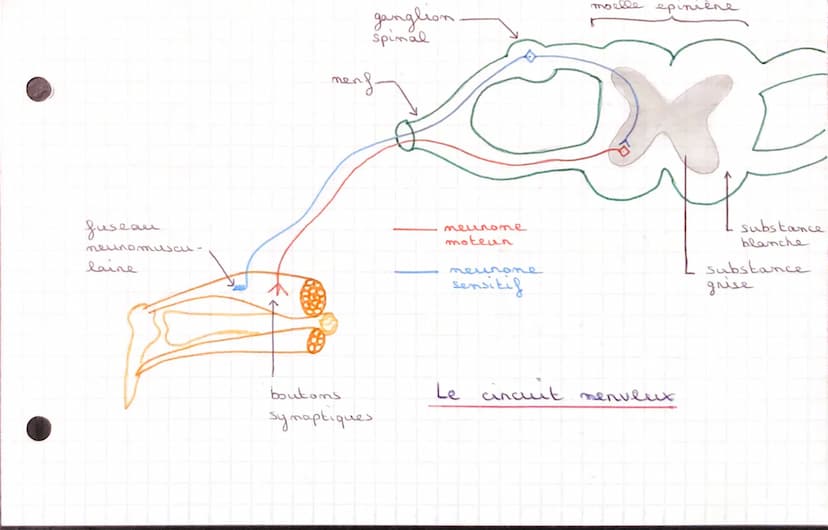 moelle épinière
ganglion
spinal
nerf
fuseau
neuromuscu-
laire
neurone
moteur
neurone
sensitif
substance
blanche
substance
grise
boutons
synaptiques
Le circuit nerveux